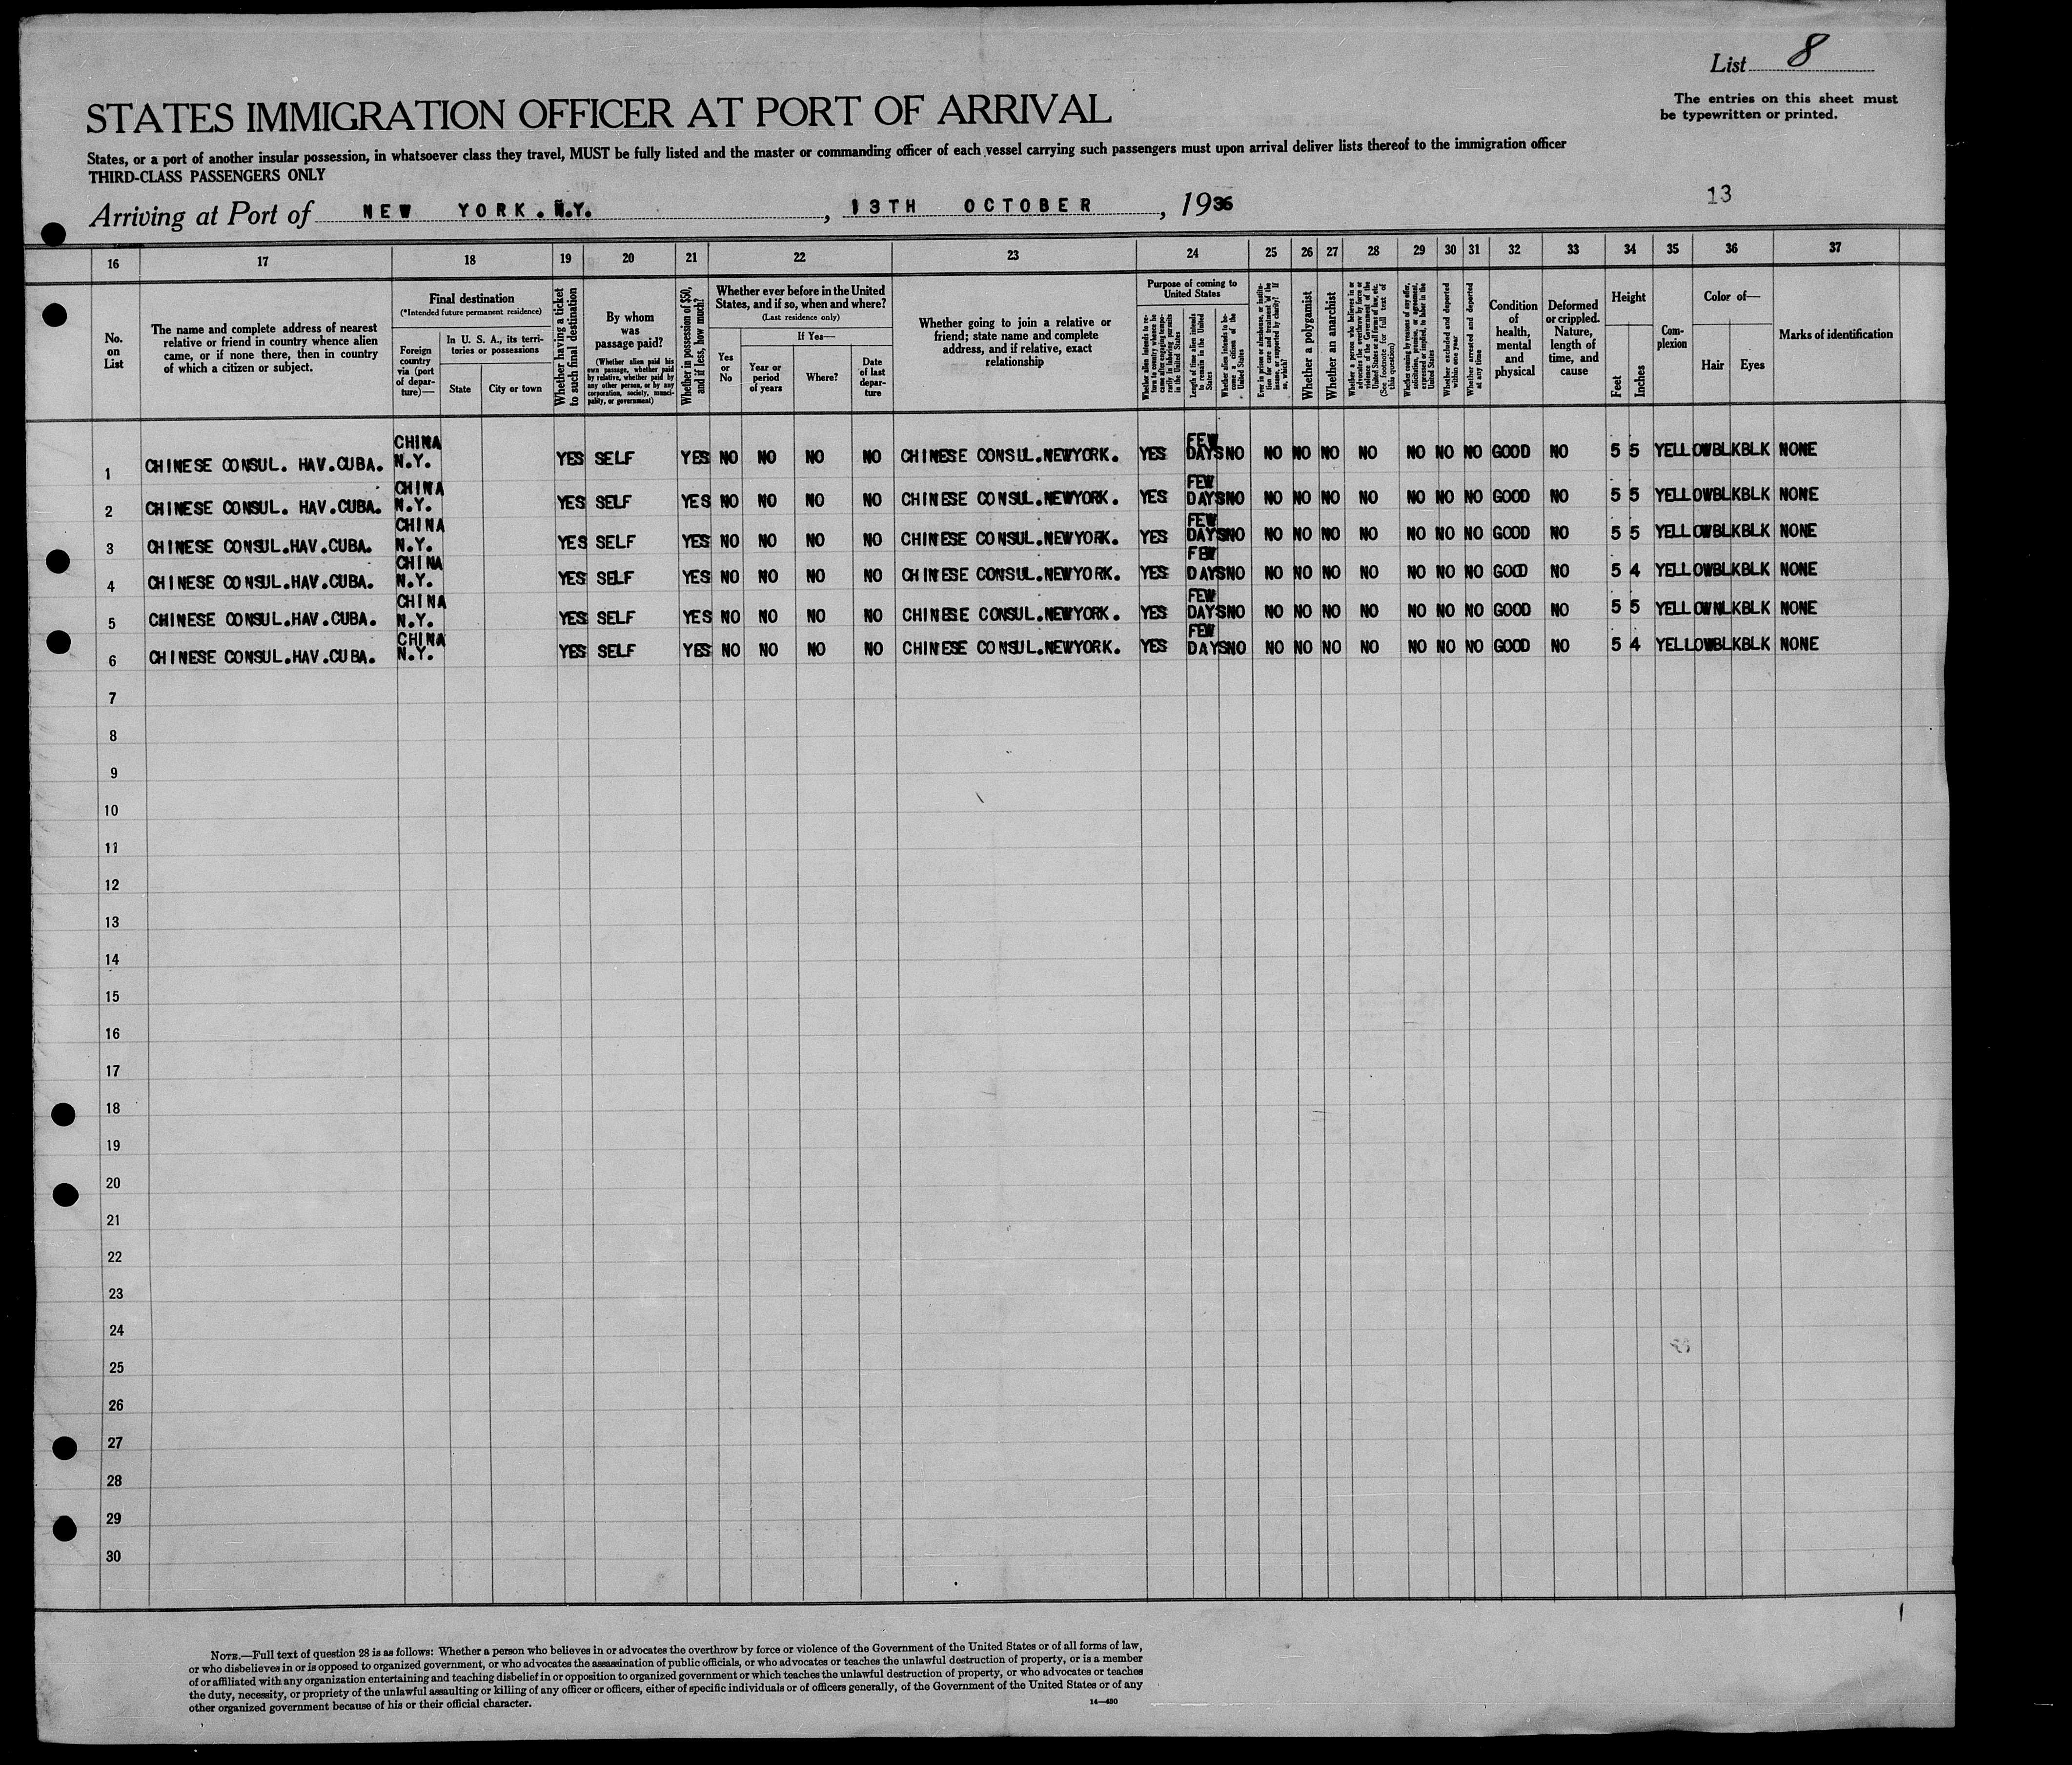 List 8
The entries on this sheet must
be typewritten or printed.
STATES IMMIGRATION OFFICER AT PORT OF ARRIVAL
States, or a port of another insular possession, in whatsoever class they travel, MUST be fully listed and the master or commanding officer of each vessel carrying such passengers must upon arrival deliver lists thereof to the immigration officer
THIRD-CLASS PASSENGERS ONLY
13
Arriving at Port of NEW YORK. N.Y. , 13TH OCTOBER , 1936
16 17 18 19 20 21 22 23 24 25 26 27 28 29 30 31 32 33 34 35 36 37
No.
on
List
The name and complete address of nearest
relative or friend in country whence alien
came, or if none there, then in country
of which a citizen or subject.
Final destination
(*Intended future permanent residence)
Foreign
country
via (port
of depar-
ture)—
In U. S. A., its terri-
tories or possessions
State
City or town
Whether having a ticket
to such final destination
By whom
was
passage paid?
(Whether alien paid his
own passage, whether paid
by relative, whether paid by
any other person, or by any
corporation, society, munici-
pality, or government)
Whether in possession of $50,
and if less, how much?
Whether ever before in the United
States, and if so, when and where?
(Last residence only)
Yes
or
No
If Yes—
Year or
period
of years
Where?
Date
of last
depar-
ture
Whether going to join a relative or
friend; state name and complete
address, and if relative, exact
relationship
Purpose of coming to
United States
Length of time alien intends
to remain in the United
States
Whether alien intends to be-
come a citizen of the
United States
Whether a polygamist
Whether an anarchist
Whether excluded and deported
within one year
Whether arrested and deported
at any time
Condition
of
health,
mental
and
physical
Deformed
or crippled.
Nature,
length of
time, and
cause
Height
Feet
Inches
Com-
plexion
Color of—
Hair
Eyes
Marks of identification
1 CHINESE CONSUL. HAV.CUBA. CHINA N.Y. YES SELF YES NO NO NO NO CHINESE CONSUL.NEWYORK. YES FEW DAYS NO NO NO NO NO NO NO NO GOOD NO 5 5 YELLOW BLK BLK NONE
2 CHINESE CONSUL. HAV.CUBA. CHINA N.Y. YES SELF YES NO NO NO NO CHINESE CONSUL.NEWYORK. YES FEW DAYS NO NO NO NO NO NO NO NO GOOD NO 5 5 YELLOW BLK BLK NONE
3 CHINESE CONSUL.HAV.CUBA. CHINA N.Y. YES SELF YES NO NO NO NO CHINESE CONSUL.NEWYORK. YES FEW DAYS NO NO NO NO NO NO NO NO GOOD NO 5 5 YELLOW BLK BLK NONE
4 CHINESE CONSUL.HAV.CUBA. CHINA N.Y. YES SELF YES NO NO NO NO CHINESE CONSUL.NEWYORK. YES FEW DAYS NO NO NO NO NO NO NO NO GOOD NO 5 4 YELLOW BLK BLK NONE
5 CHINESE CONSUL.HAV.CUBA. CHINA N.Y. YES SELF YES NO NO NO NO CHINESE CONSUL.NEWYORK. YES FEW DAYS NO NO NO NO NO NO NO NO GOOD NO 5 5 YELLOW NLK BLK NONE
6 CHINESE CONSUL.HAV.CUBA. CHINA N.Y. YES SELF YES NO NO NO NO CHINESE CONSUL.NEWYORK. YES FEW DAYS NO NO NO NO NO NO NO NO GOOD NO 5 4 YELLOW BLK BLK NONE
7
8
9
10
11
12
13
14
15
16
17
18
19
20
21
22
23
24
25
26
27
28
29
30
NOTE.—Full text of question 28 is as follows: Whether a person who believes in or advocates the overthrow by force or violence of the Government of the United States or of all forms of law,
or who disbelieves in or is opposed to organized government, or who advocates the assassination of public officials, or who advocates or teaches the unlawful destruction of property, or is a member
of or affiliated with any organization entertaining and teaching disbelief in or opposition to organized government or which teaches the unlawful destruction of property, or who advocates or teaches
the duty, necessity, or propriety of the unlawful assaulting or killing of any officer or officers, either of specific individuals or of officers generally, of the Government of the United States or of any
other organized government because of his or their official character.
14—430